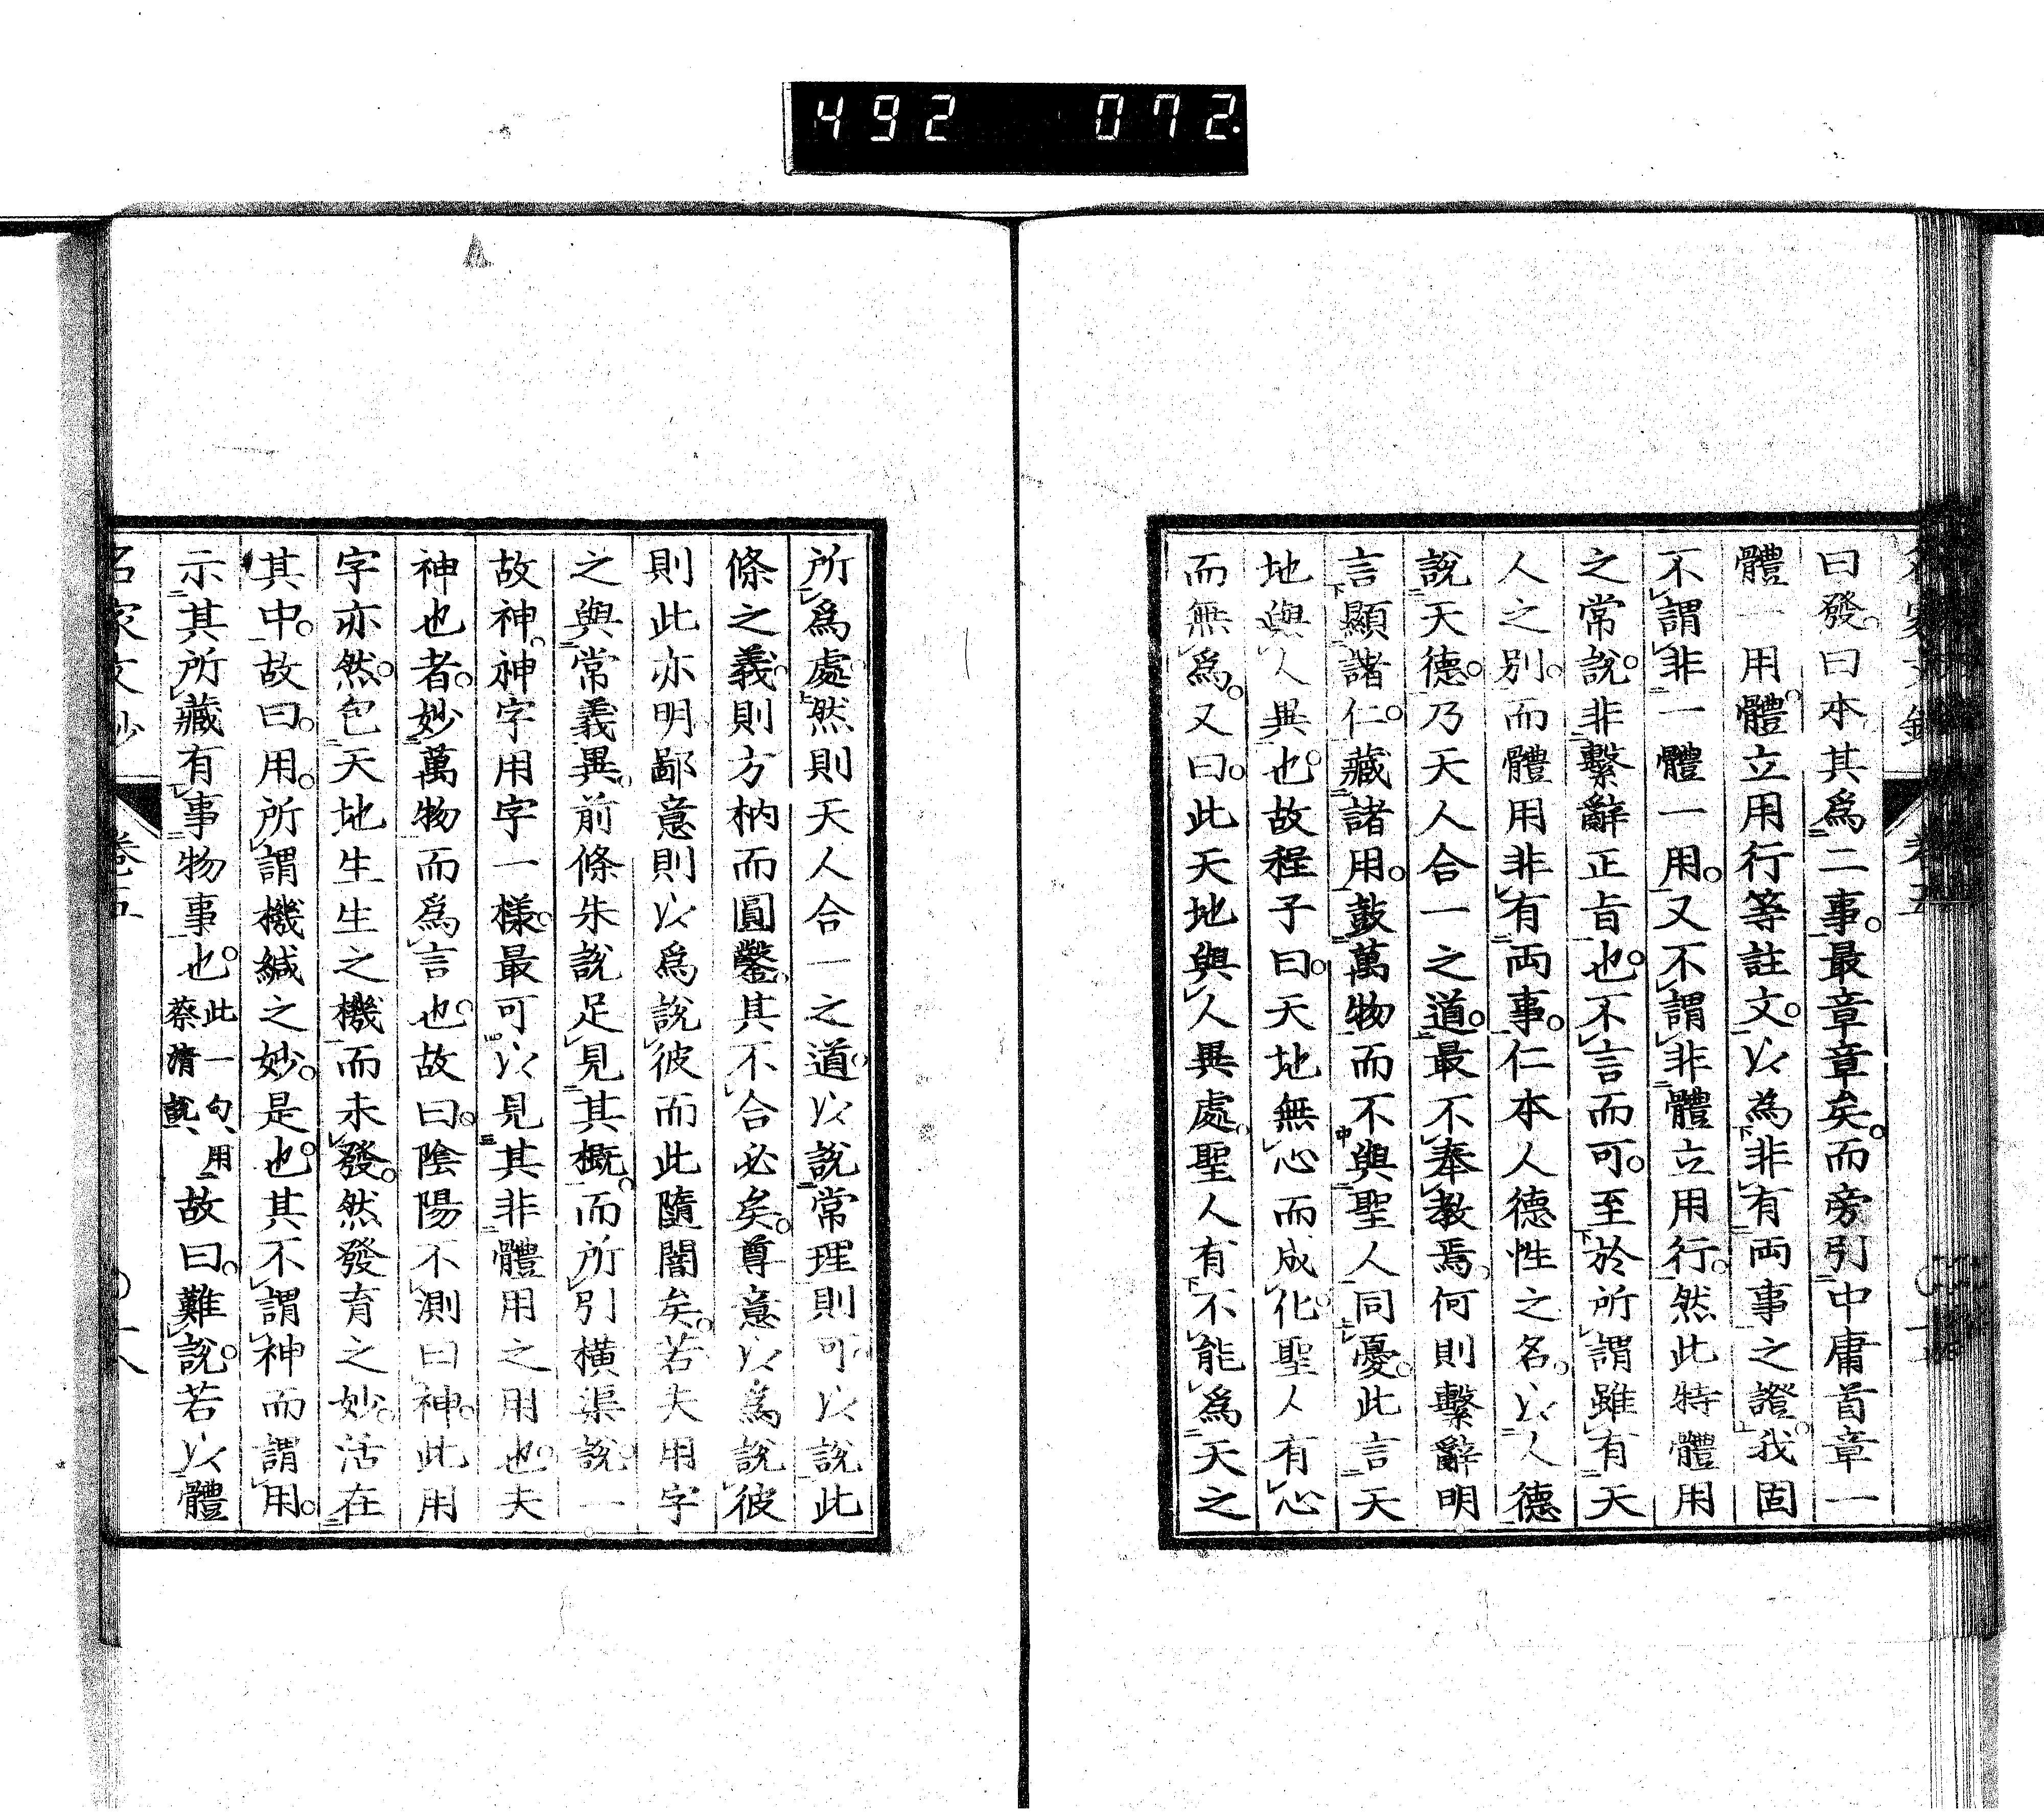 492 072.
曰發。曰本其爲二事。最章章矣。而旁引中庸首章一
體一用。體立用行等註文。以為非有両事之證。我固
不謂非一體一用。又不謂非體立用行。然此特體用
之常說。非繫辭正旨也。不言而可。至於所謂雖有天
人之別。而體用非有両事。仁本人德性之名。以人德
說天德。乃天人合一之道。最不奉教焉。何則繫辭明
言顯諸仁。藏諸用。鼓萬物而不與聖人同憂。此言天
地與人異也。故程子曰。天地無心而成化。聖人有心
而無爲。又曰。此天地與人異處。聖人有不能爲天之
所爲處。然則天人合一之道。以說常理則可。以說此
條之義。則方枘而圓鑿。其不合必矣。尊意以爲說彼
則此亦明。鄙意則以爲說彼而此隨闇矣。若夫用字
之與常義異。前條朱說足見其概。而所引橫渠說。一
故神。神字用字一樣。最可以見其非體用之用也。夫
神也者。妙萬物而爲言也。故曰。陰陽不測曰神。此用
字亦然。包天地生生之機而未發。然發育之妙。活在
其中。故曰。用。所謂機緘之妙。是也。其不謂神而謂用。
示其所藏有事物事也。此一句、用蔡清說、故曰。難說。若以體
名家文鈔 卷五 〇十八